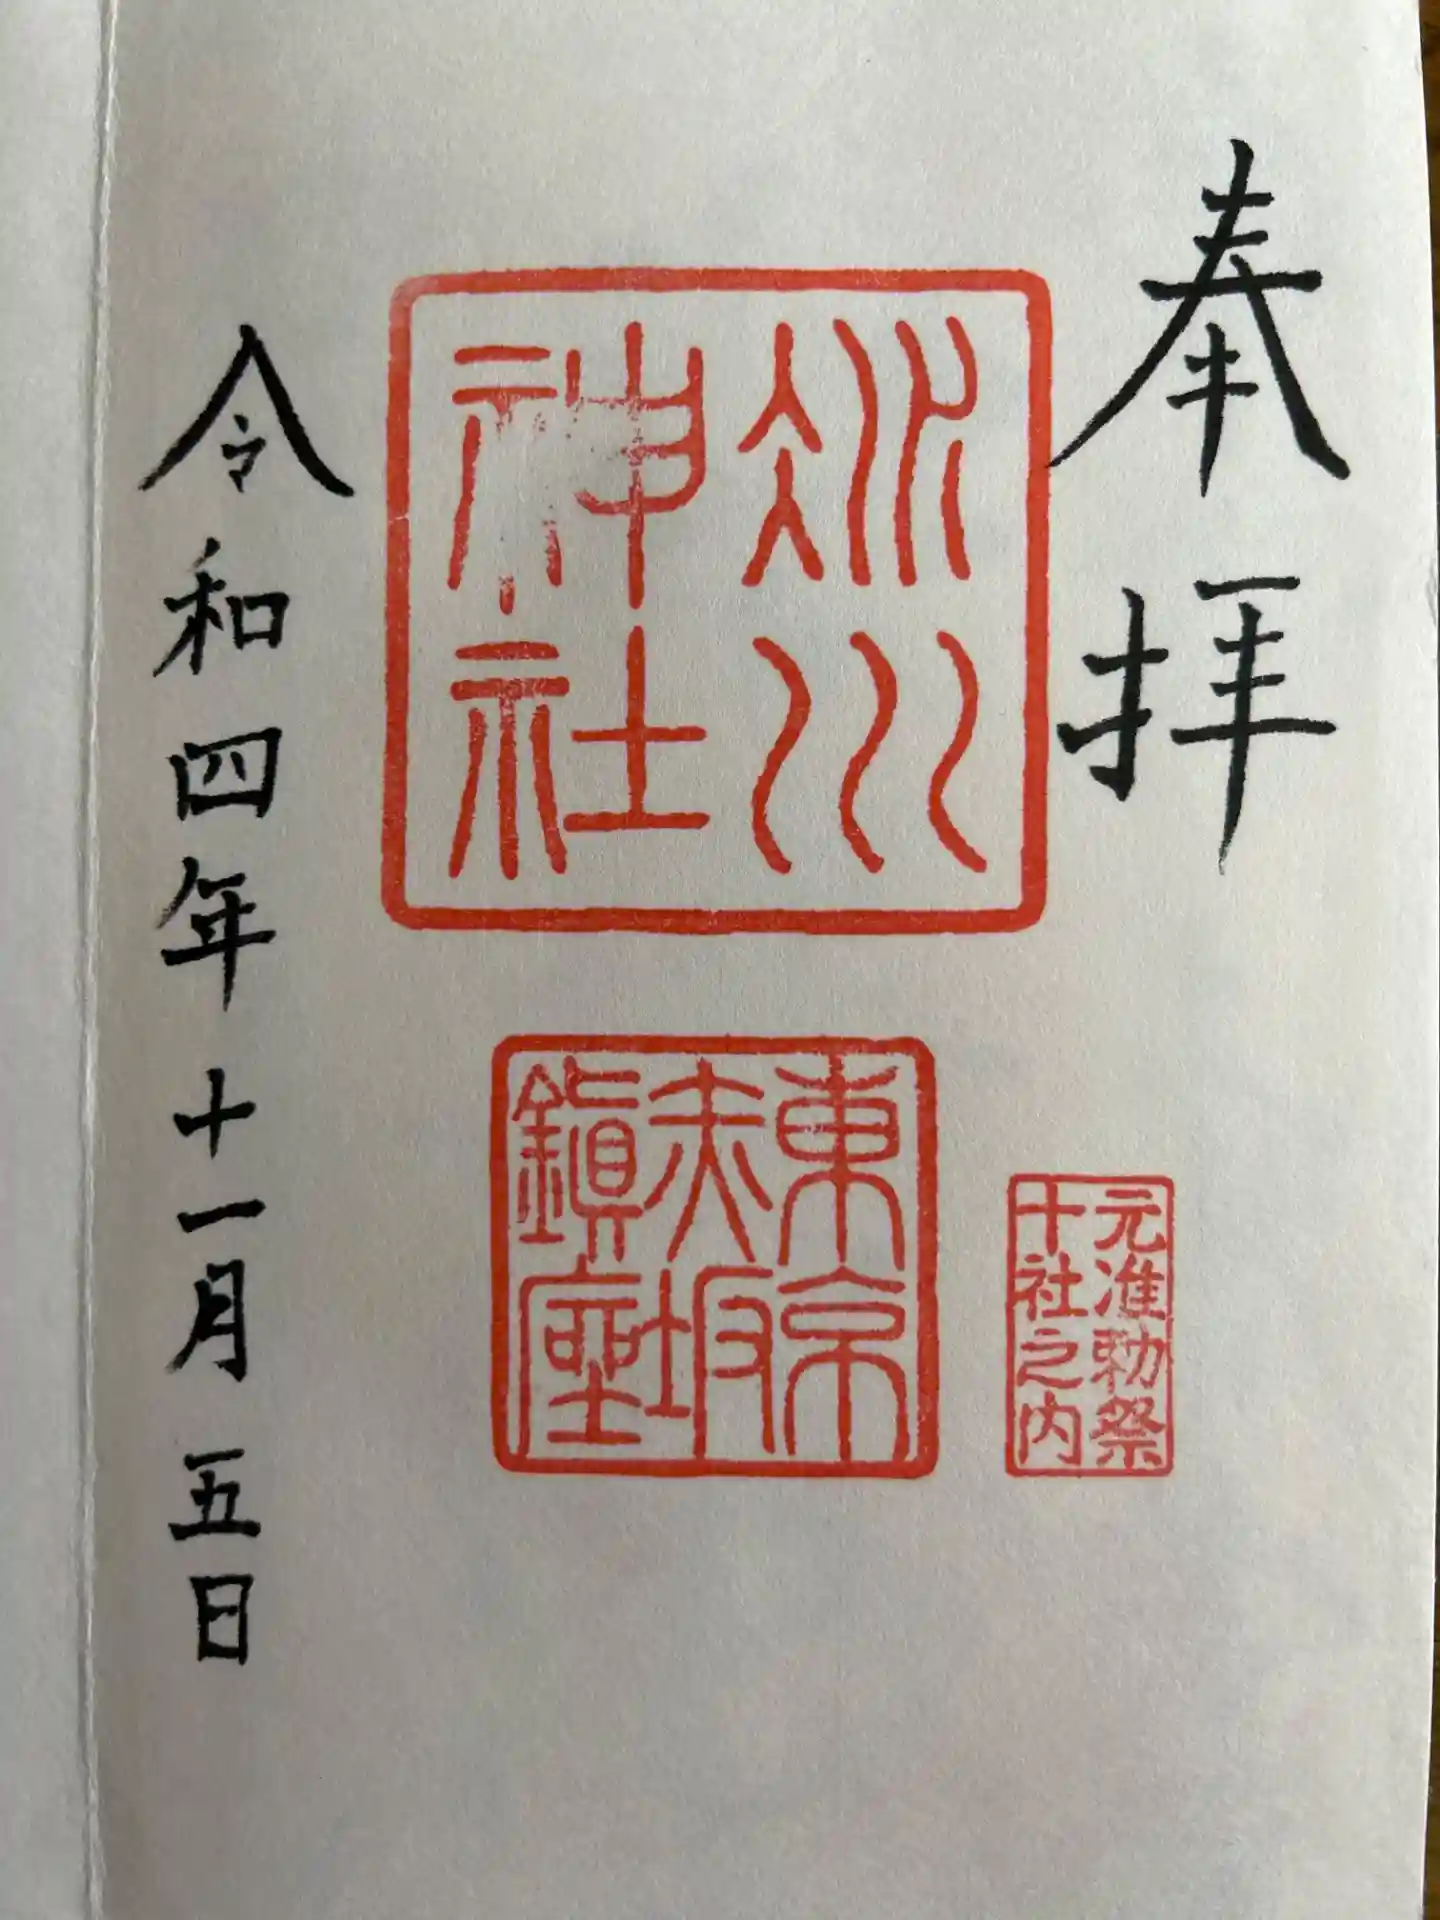 奉拝
元准勅祭
十社之内
冰川
神社
東京
赤坂
鎭座
令和四年十一月五日